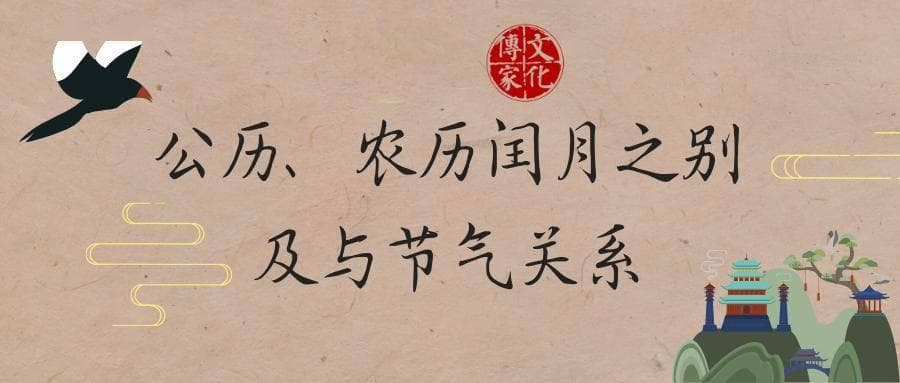 文化傳家
公历、农历闰月之别
及与节气关系